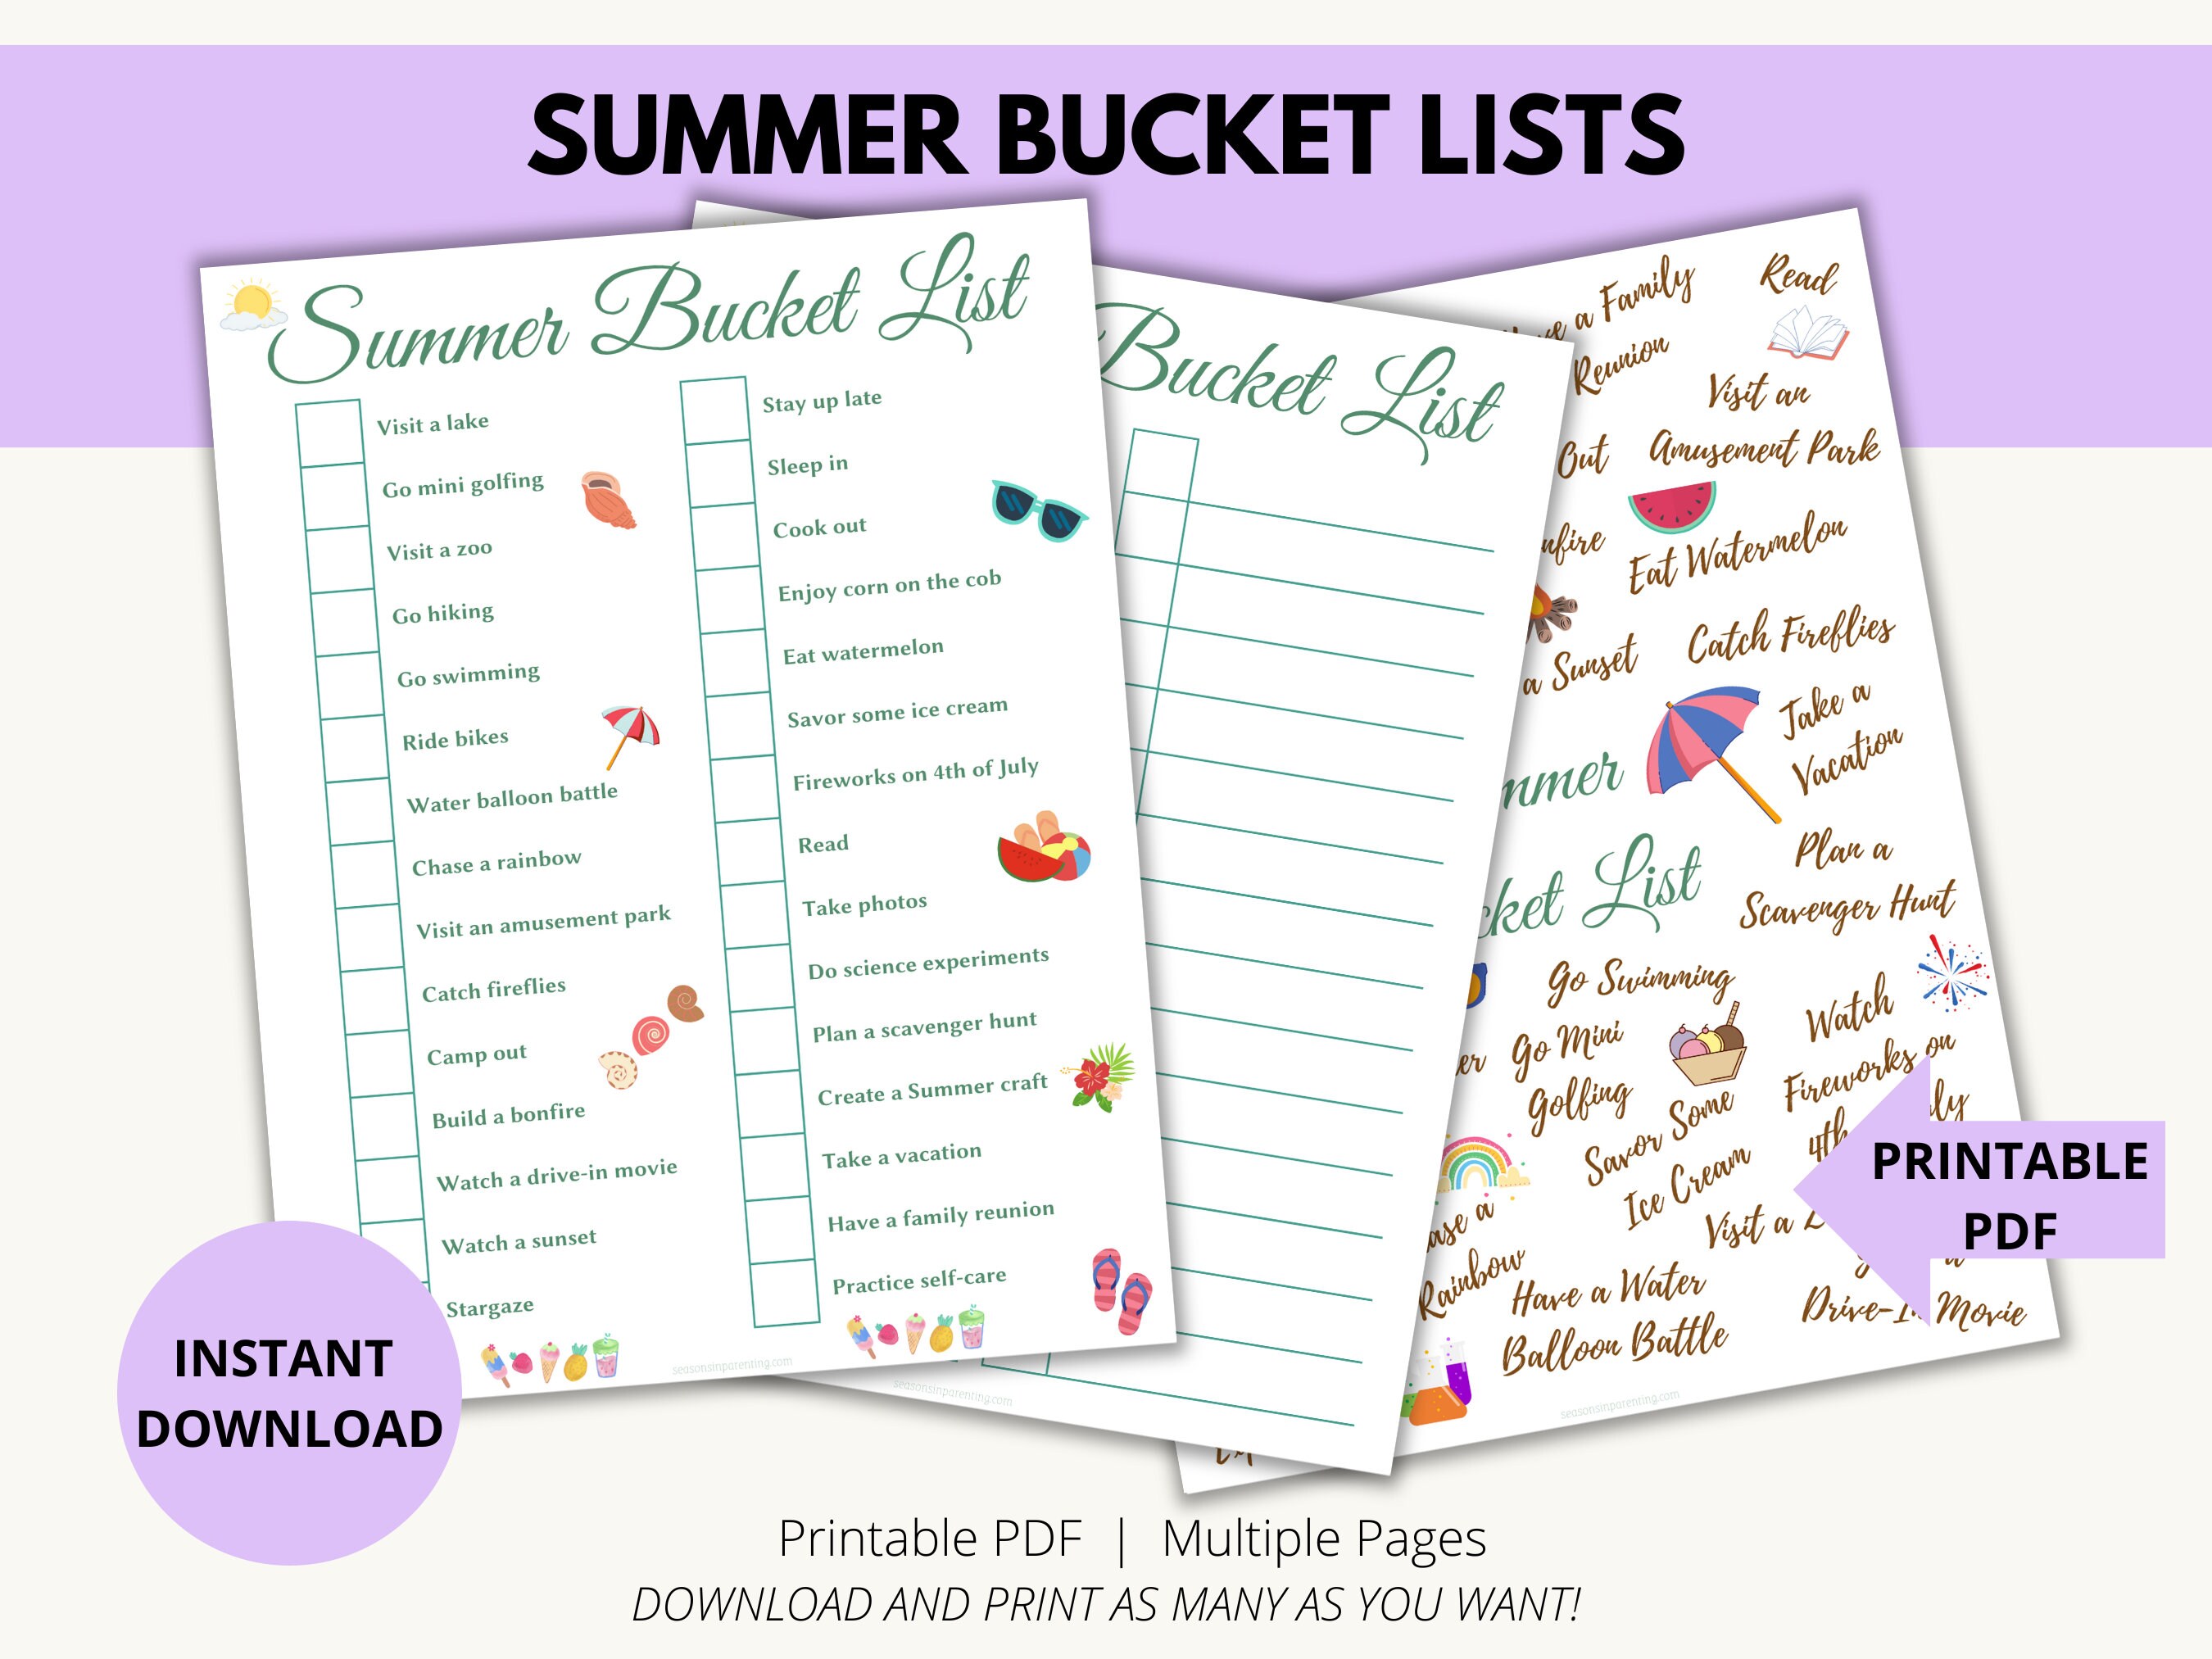 SUMMER BUCKET LISTS
Summer Bucket List
Visit a lake
Go mini golfing
Visit a zoo
Go hiking
Go swimming
Ride bikes
Water balloon battle
Chase a rainbow
Visit an amusement park
Catch fireflies
Camp out
Build a bonfire
Watch a drive-in movie
Watch a sunset
Stargaze
Stay up late
Sleep in
Cook out
Enjoy corn on the cob
Eat watermelon
Savor some ice cream
Fireworks on 4th of July
Read
Take photos
Do science experiments
Plan a scavenger hunt
Create a Summer craft
Take a vacation
Have a family reunion
Practice self-care
seasonsinparenting.com
Bucket List
seasonsinparenting.com
a Family
Reunion
Read
Visit an
Amusement Park
Out
Eat Watermelon
a Sunset
Catch Fireflies
Take a
Vacation
List
Plan a
Scavenger Hunt
Go Swimming
Go Mini
Golfing
Savor Some
Ice Cream
Watch
Fireworks on
4th
Visit a
a
Rainbow
Have a Water
Balloon Battle
Drive-In Movie
seasonsinparenting.com
INSTANT
DOWNLOAD
PRINTABLE
PDF
Printable PDF | Multiple Pages
DOWNLOAD AND PRINT AS MANY AS YOU WANT!